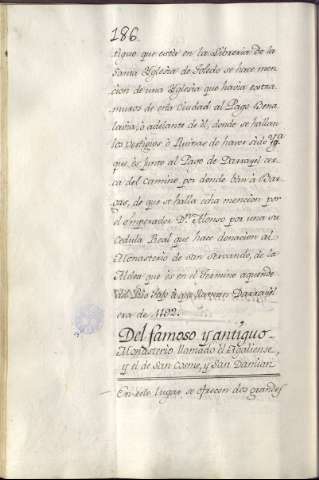 186
tiguo que está en la Libreria de la
Santa Yglesia de Toledo se hace men
cion de una Yglesia que havia extra
muros de esta Ciudad al Pago Bena
laria, ô adelante de él, donde se hallan
los vestigios ô Ruinas de haver sido Yg.ª
que és junto al Pago de Darrayel cer
ca del Camino por donde ban â Bar
gas, de que se halla echa mencion por
el emperador Dn. Alonso por una su
Cedula Real que hace donacion al
Monasterio de San Servando, de la
Aldea que és en el Termino aquende
del Rio Tajo â que llaman Darrayel
era de 1192.
Del famoso y antiguo
Monasterio llamado el Agaliense,
y él de San Cosme, y San Damian
En este Lugar se ofrecen dos grandes